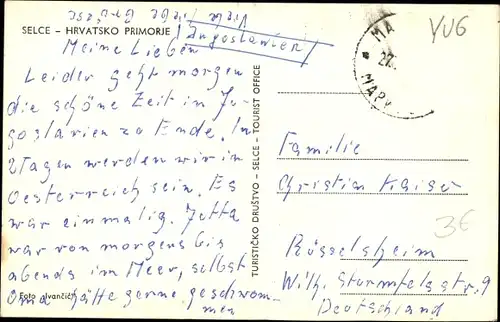 Viele liebe Grüße
SELCE – HRVATSKO PRIMORJE (Jugoslawien)
Meine Lieben
Leider geht morgen
die schöne Zeit in Ju-
goslavien zu Ende. In
2 Tagen werden wir in
Oesterreich sein. Es
war einmalig. Jutta
war von morgens bis
abends im Meer, selbst
Oma hätte gerne geschwom-
men
Foto Ivančić
TURISTIČKO DRUŠTVO – SELCE – TOURIST OFFICE
MA
27.
MAPK
YUG
Familie
Christian Kaiser
3€
Rüsselsheim
Wilh. Sturmfelsstr. 9
Deutschland